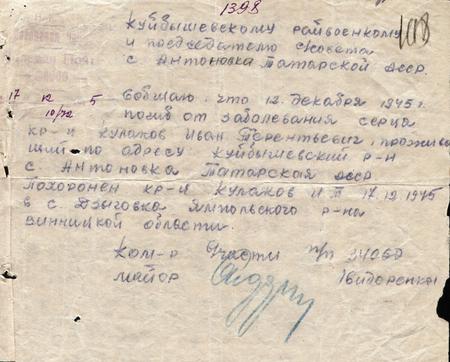 1398
1018
Куйбышевскому райвоенкому
и председателю совета
с Антоновка Татарской АССР.
17 12 5
10/72
Собщаю, что 12 декабря 1945 г.
помер от заболевания серца
кр-ц Кулаков Иван Терентьевич, прожива
ший по адресу Куйбышевский р-н
с. Антоновка Татарская АССР
Похоронен кр-ц Кулаков И Т 17.12.1945
в с. Дзыговка Ямпольского р-на
Винницкой области.
Ком-р части п/п 34060
майор